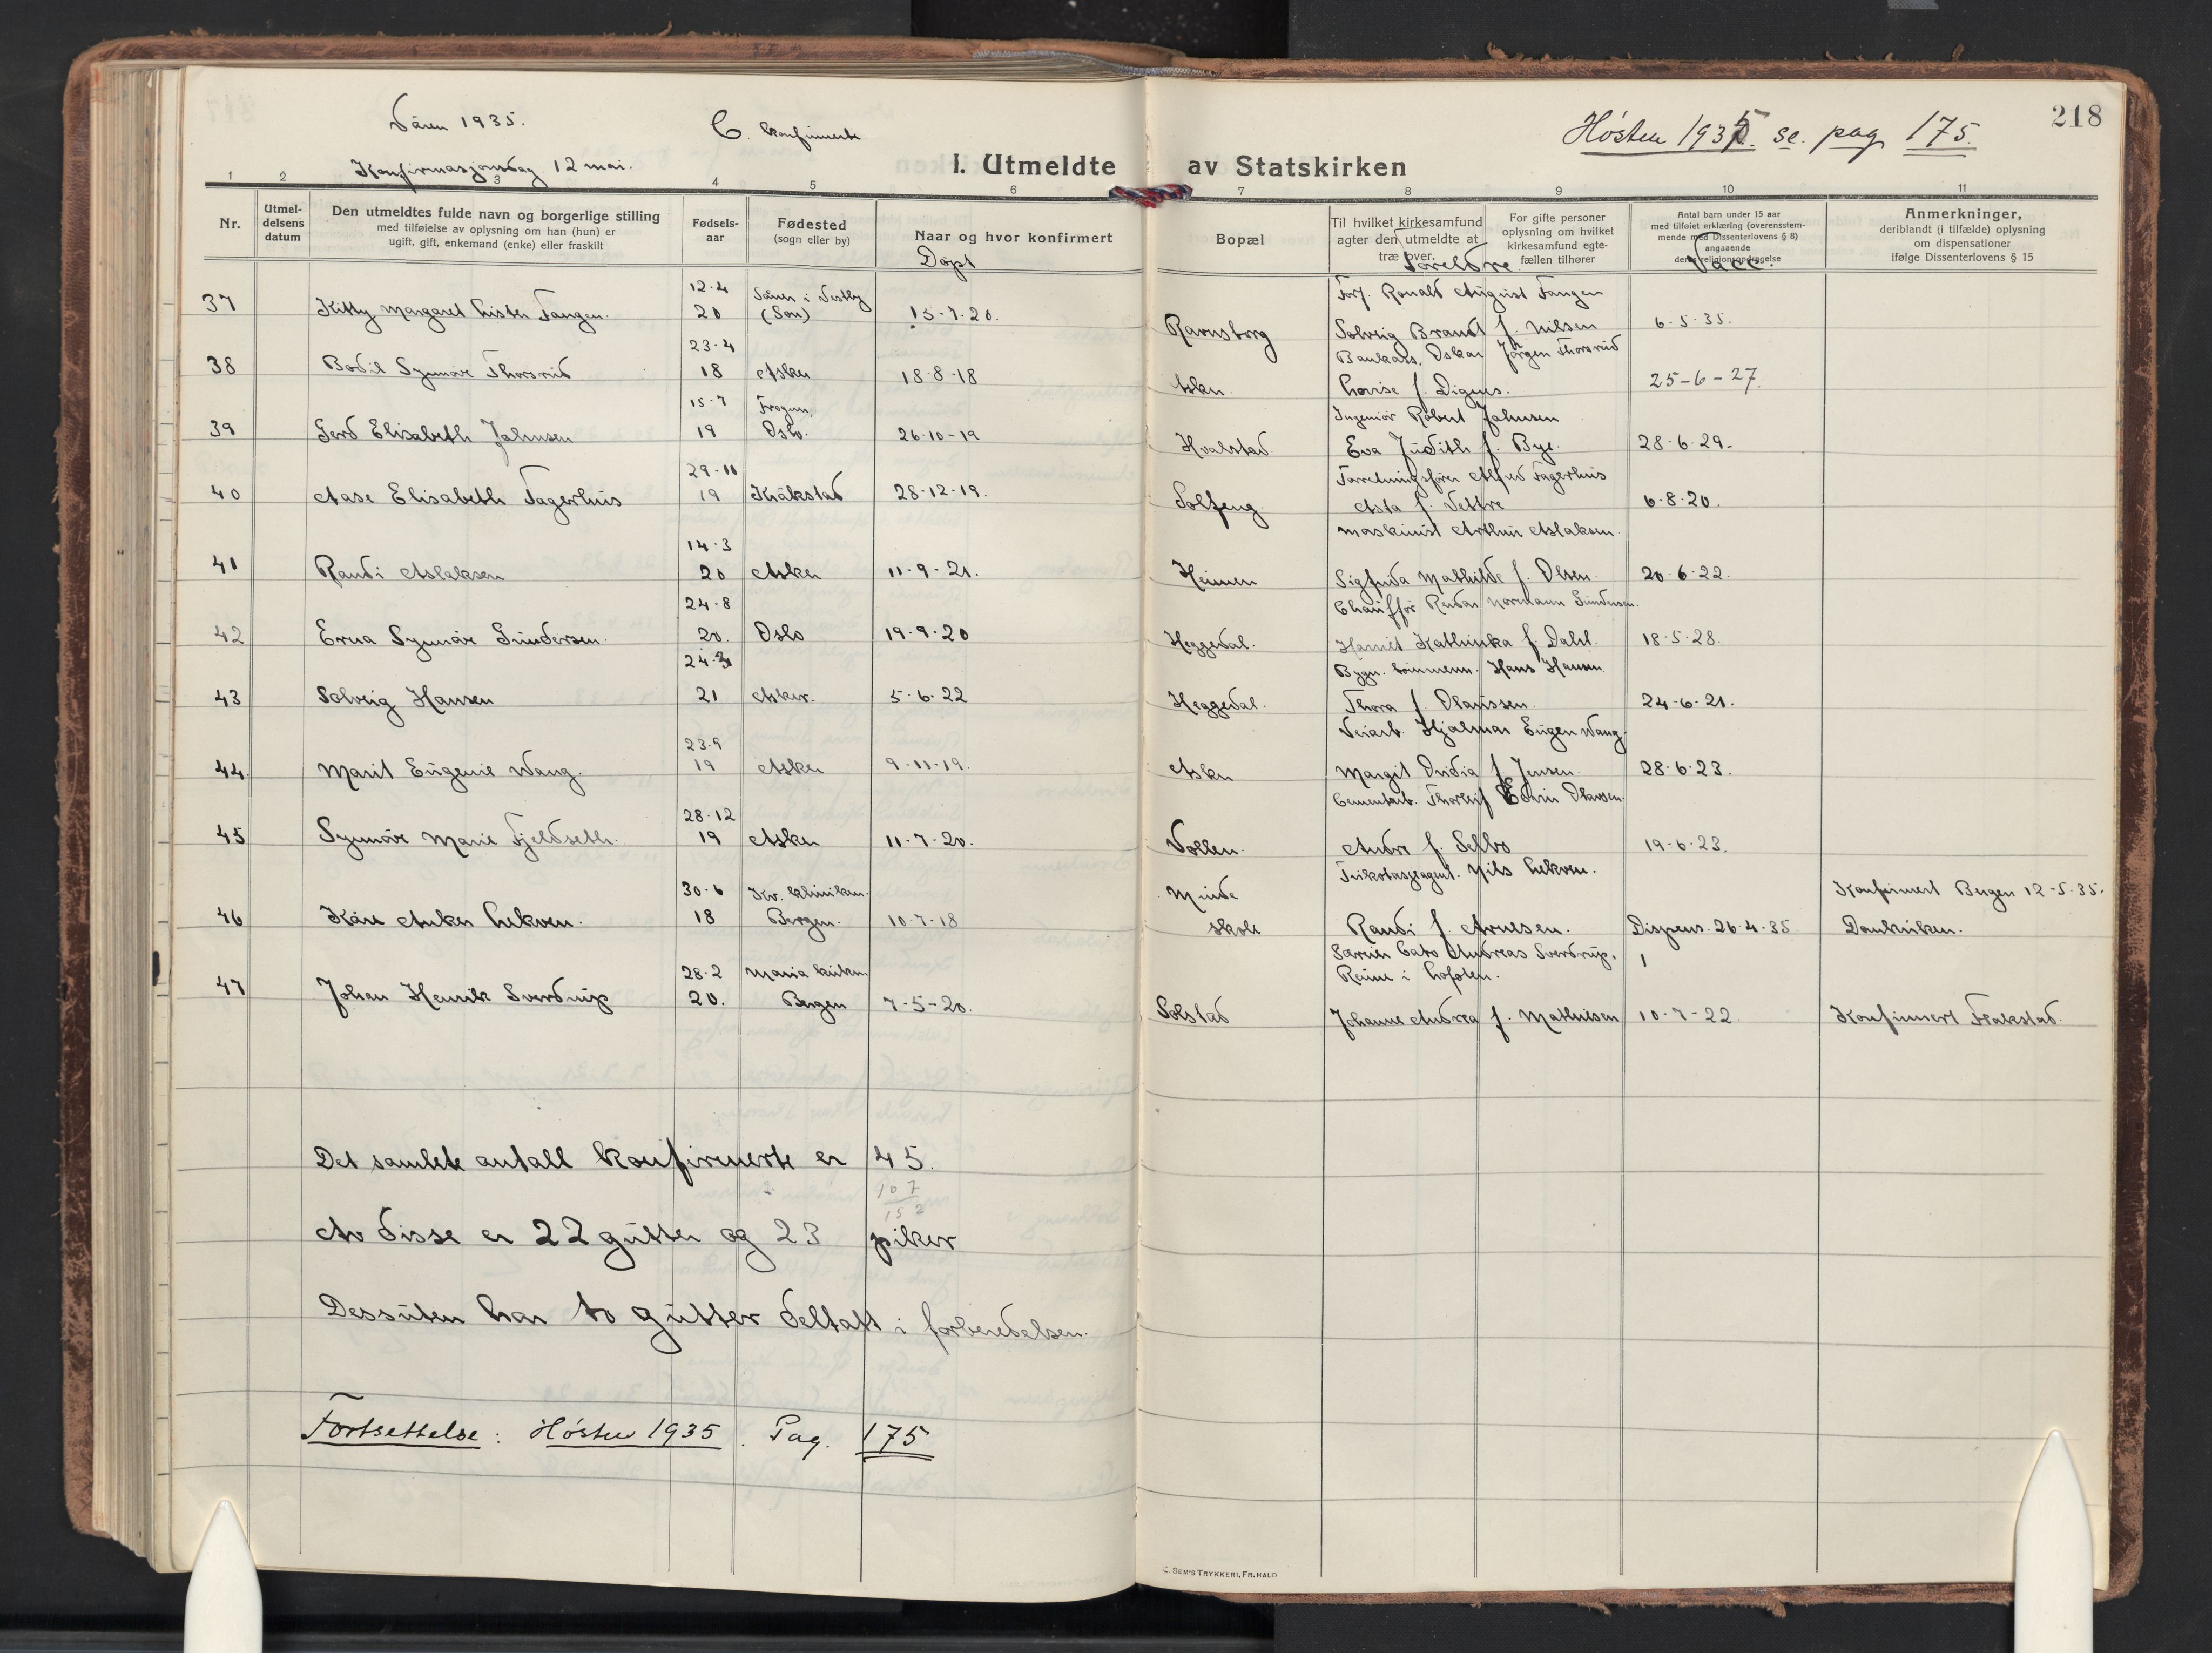 218
Våren 1935.
C. konfirmerte
Høsten 1935. se. pag 175.
Konfirmasjonsdag 12 mai.
I. Utmeldte av Statskirken
1 2 3 4 5 6 7 8 9 10 11
Nr.
Utmel-
delsens
datum
Den utmeldtes fulde navn og borgerlige stilling
med tilføielse av oplysning om han (hun) er
ugift, gift, enkemand (enke) eller fraskilt
Fødsels-
aar
Fødested
(sogn eller by)
Naar og hvor konfirmert
Døpt
Bopæl
Til hvilket kirkesamfund
agter den utmeldte at
træ over.
Foreldre
For gifte personer
oplysning om hvilket
kirkesamfund egte-
fællen tilhører
Antal barn under 15 aar
med tilføiet erklæring (overensstem-
mende med Dissenterlovens § 8)
angaaende
deres religionsopdragelse
Vacc.
Anmerkninger,
deriblandt (i tilfælde) oplysning
om dispensationer
ifølge Dissenterlovens § 15
12-4 Såner i Vestby Forf. Ronald August Fangen
37 Kitty Margaret Lister Fangen. 20 (Son) 15-7-20. Ravnsborg Solveig Brandt f. Nilsen 6-5-35.
23-4 Bankass. Oskar Jörgen Thorsrud
38 Bodil Synnöve Thorsrud 18 Asker 18-8-18 Asker Lovise f. Dignes. 25-6-27.
15-7 Frogner, Ingeniör Robert Jahnsen
39 Gerd Elisabeth Jahnsen 19 Oslo. 26-10-19 Hvalstad Eva Judith f. Bye. 28-6-29.
29-10 Forretningsförer Alfred Fagerhus
40 Aase Elisabeth Fagerhus 19 Kråkstad 28-12-19. Solfeng Asta f. Vettre 6-8-20.
14-3 Maskinist Arthur Aslaksen
41 Randi Aslaksen 20 Asker 11-9-21. Heimen Sigfrida Mathilde f. Olsen. 20-6-22.
24-8 Chauffør Reidar Normann Gundersen.
42 Erna Synnöve Gundersen. 20. Oslo 19-9-20 Heggedal. Harriet Kathinka f. Dahl. 18-5-28.
Bygn. tömmerm. Hans Hansen
43 Solveig Hansen 21 Asker. 5-6-22 Heggedal. Thora f. Olaussen. 24-6-21.
23-9 Veiarb. Hjalmar Eugen Wang
44. Marit Eugenie Wang. 19 Asker 9-11-19. Asker Margit Ovidia f. Jensen. 28-6-23.
28-12 Cementarb. Thorleif Edvin Olavsen.
45 Synnöve Marie Fjeldseth. 19 Asker 11-7-20. Vollen. Andre f. Selbo 19-6-23.
30-6 Kv. klinikken. Minde Trikotasjeagent. Nils Lekven. Konfirmert Bergen 12-5-35.
46 Kåre Anker Lekven. 18 Bergen. 10-7-18 skole Randi f. Arnesen. Dispens. 26-4-35 Domkirken.
28-2 Maria kirken Cato Andreas Sverdrup.
Reine i Lofoten.
47 Johan Henrik Sverdrup 20. Bergen 7-5-20. Solstad Johanne Andrea f. Mathisen 10-7-22. Konfirmert Flakstad.
Det samlete antall konfirmerte er 45.
107
152
Av disse er 22 gutter og 23 piker
Dessuten har to gutter deltatt i forberedelsen.
Fortsettelse: Høsten 1935. Pag. 175
C. SEM'S TRYKKERI, FR.HALD